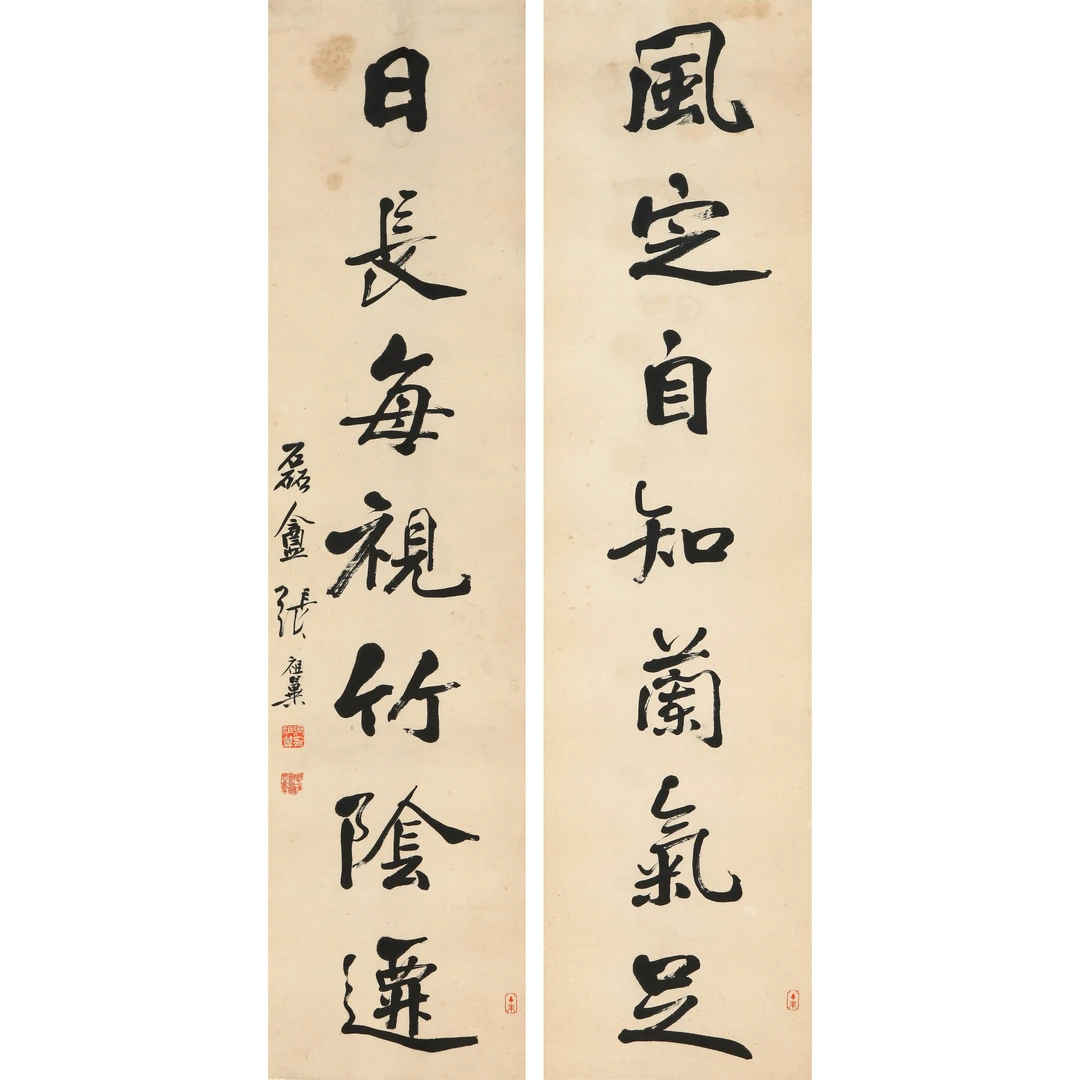 風定自知蘭氣足
日長每視竹陰遷
磊盦張祖翼